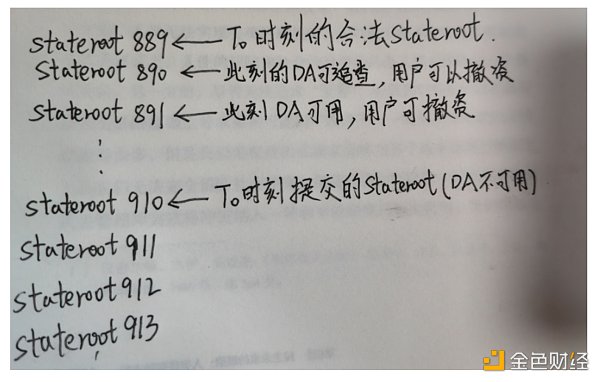 stateroot 889 ← T₀时刻的合法stateroot.
stateroot 890 ← 此刻的DA可追查,用户可以撤资
stateroot 891 ← 此刻DA可用,用户可撤资
⋮
stateroot 910 ← T₀时刻提交的stateroot(DA不可用)
stateroot 911
stateroot 912
stateroot 913
金色财经